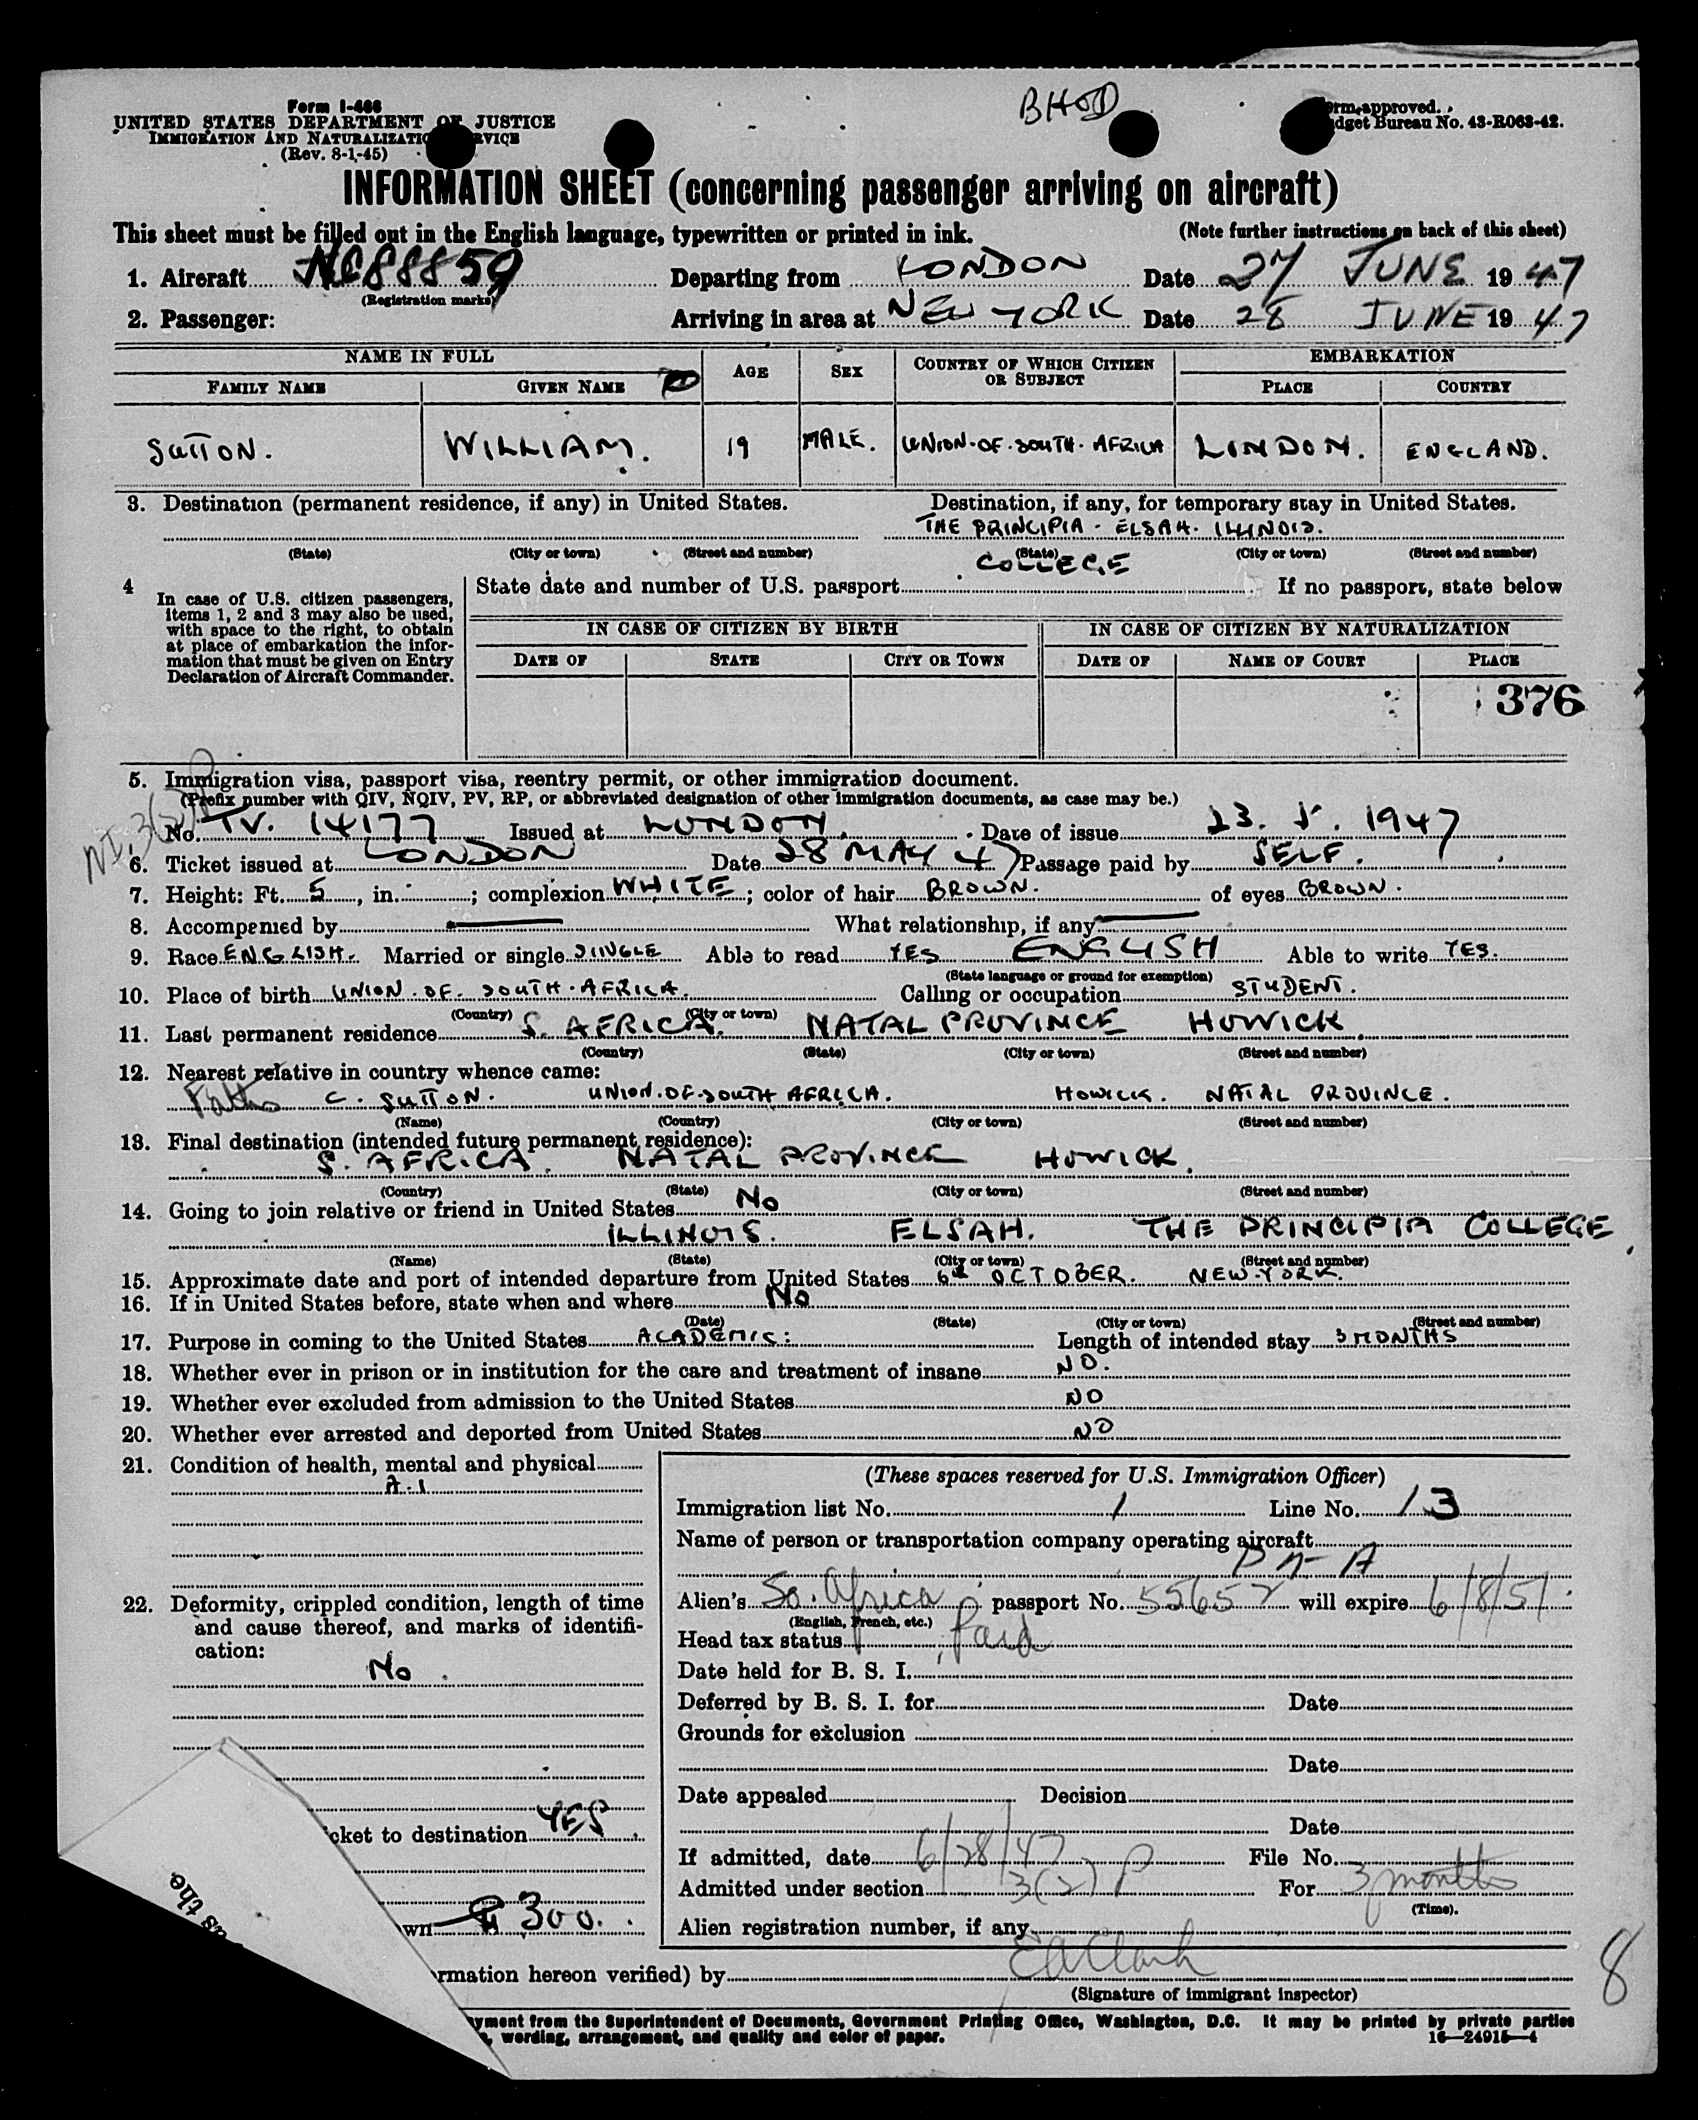 BHOD
Form I-466
UNITED STATES DEPARTMENT OF JUSTICE
IMMIGRATION AND NATURALIZATION SERVICE
(Rev. 8-1-45)
Form approved.
Budget Bureau No. 43-R063-42.
INFORMATION SHEET (concerning passenger arriving on aircraft)
This sheet must be filled out in the English language, typewritten or printed in ink. (Note further instructions on back of this sheet)
1. Aircraft NC88859 Departing from LONDON Date 27 JUNE 1947
(Registration marks)
2. Passenger: Arriving in area at NEW YORK Date 28 JUNE 1947
NAME IN FULL AGE SEX COUNTRY OF WHICH CITIZEN OR SUBJECT EMBARKATION
FAMILY NAME GIVEN NAME PLACE COUNTRY
SUTTON. WILLIAM. 19 MALE. UNION-OF-SOUTH-AFRICA LONDON. ENGLAND.
3. Destination (permanent residence, if any) in United States. Destination, if any, for temporary stay in United States.
THE PRINCIPIA - ELSAH - ILLINOIS.
(State) (City or town) (Street and number) (State) (City or town) (Street and number)
COLLEGE
4 In case of U.S. citizen passengers, items 1, 2 and 3 may also be used, with space to the right, to obtain at place of embarkation the information that must be given on Entry Declaration of Aircraft Commander.
State date and number of U.S. passport If no passport, state below
IN CASE OF CITIZEN BY BIRTH IN CASE OF CITIZEN BY NATURALIZATION
DATE OF STATE CITY OR TOWN DATE OF NAME OF COURT PLACE
376
5. Immigration visa, passport visa, reentry permit, or other immigration document.
(Prefix number with QIV, NQIV, PV, RP, or abbreviated designation of other immigration documents, as case may be.)
No. TV. 14177 Issued at LONDON. Date of issue 23. 5. 1947
6. Ticket issued at LONDON Date 28 MAY 47 Passage paid by SELF.
7. Height: Ft. 5, in. ; complexion WHITE; color of hair BROWN. of eyes BROWN.
8. Accompenied by What relationship, if any
9. Race ENGLISH. Married or single SINGLE Able to read YES ENGLISH Able to write YES.
(State language or ground for exemption)
10. Place of birth UNION. OF. SOUTH. AFRICA. Calling or occupation STUDENT.
(Country) (City or town)
11. Last permanent residence S. AFRICA. NATAL PROVINCE HOWICK.
(Country) (State) (City or town) (Street and number)
12. Nearest relative in country whence came:
Father C. SUTTON. UNION-OF-SOUTH AFRICA. HOWICK. NATAL PROVINCE.
(Name) (Country) (City or town) (Street and number)
13. Final destination (intended future permanent residence):
S. AFRICA. NATAL PROVINCE HOWICK.
(Country) (State) (City or town) (Street and number)
14. Going to join relative or friend in United States No
ILLINOIS. ELSAH. THE PRINCIPIA COLLEGE.
(Name) (State) (City or town) (Street and number)
15. Approximate date and port of intended departure from United States 6th OCTOBER. NEW-YORK.
16. If in United States before, state when and where No
(Date) (State) (City or town) (Street and number)
17. Purpose in coming to the United States ACADEMIC: Length of intended stay 3 MONTHS
18. Whether ever in prison or in institution for the care and treatment of insane NO.
19. Whether ever excluded from admission to the United States NO
20. Whether ever arrested and deported from United States NO
21. Condition of health, mental and physical
A.1
22. Deformity, crippled condition, length of time and cause thereof, and marks of identification:
No.
cket to destination YES
wn 300.
(These spaces reserved for U.S. Immigration Officer)
Immigration list No. 1 Line No. 13
Name of person or transportation company operating aircraft
P A A
Alien's So. Africa passport No. 55652 will expire 6/8/51
(English, French, etc.)
Head tax status Paid
Date held for B. S. I.
Deferred by B. S. I. for Date
Grounds for exclusion
Date
Date appealed Decision
Date
If admitted, date 6/28/47 File No.
Admitted under section 3(2) P For 3 months
(Time).
Alien registration number, if any
rmation hereon verified) by EA Clark
(Signature of immigrant inspector)
8
as the
yment from the Superintendent of Documents, Government Printing Office, Washington, D.C. It may be printed by private parties
, wording, arrangement, and quality and color of paper. 16—24915-4